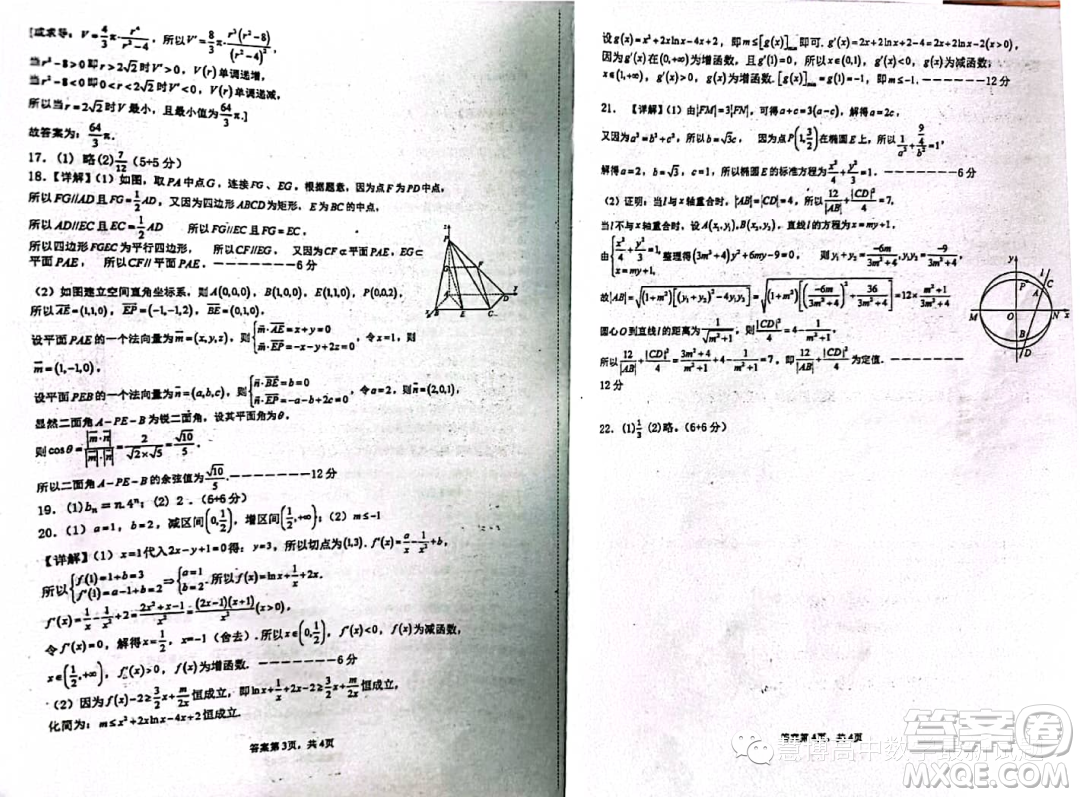 [或求导：V=4/3 π·r⁴/(r²-4)，所以V'=8/3 π·r³(r²-8)/(r²-4)²
当r²-8>0即r>2√2时V'>0，V(r)单调递增，
当r²-8<0即0<r<2√2时V'<0，V(r)单调递减，
所以当r=2√2时V最小，且最小值为64/3 π.]
故答案为：64/3 π.
17.（1）略(2)7/12（5+5分）
18.【详解】（1）如图，取PA中点G，连接FG、EG，根据题意，因为点F为PD中点，
所以FG//AD且FG=1/2 AD，又因为四边形ABCD为矩形，E为BC的中点，
所以AD//EC且EC=1/2 AD 所以FG//EC且FG=EC，
所以四边形FGEC为平行四边形， 所以CF//EG， 又因为CF⊄平面PAE，EG⊂
平面PAE， 所以CF//平面PAE，--------6分
（2）如图建立空间直角坐标系，则A(0,0,0)，B(1,0,0)，E(1,1,0)，P(0,0,2)，
所以AE=(1,1,0)，EP=(-1,-1,2)，BE=(0,1,0)，
设平面PAE的一个法向量为m=(x,y,z)，则{m·AE=x+y=0 m·EP=-x-y+2z=0，令x=1，则
m=(1,-1,0)，
设平面PEB的一个法向量为n=(a,b,c)，则{n·BE=b=0 n·EP=-a-b+2c=0，令a=2，则n=(2,0,1)，
显然二面角A-PE-B为锐二面角，设其平面角为θ，
则cosθ=|m·n|/(|m|·|n|)=2/(√2×√5)=√10/5，
所以二面角A-PE-B的余弦值为√10/5.--------12分
19.（1)bₙ=n.4ⁿ；（2）2．（6+6分）
20.（1）a=1，b=2，减区间(0,1/2)，增区间(1/2,+∞)；（2）m≤-1
【详解】（1）x=1代入2x-y+1=0得：y=3，所以切点为(1,3). f'(x)=a/x-1/x²+b，
所以{f(1)=1+b=3 f'(1)=a-1+b=2⇒{a=1 b=2.所以f(x)=lnx+1/x+2x，
f'(x)=1/x-1/x²+2=(2x²+x-1)/x²=(2x-1)(x+1)/x²(x>0)，
令f'(x)=0，解得x=1/2，x=-1（舍去）.所以x∈(0,1/2)，f'(x)<0，f(x)为减函数，
x∈(1/2,+∞)，f'(x)>0，f(x)为增函数．--------6分
（2）因为f(x)-2≥3/2 x+m/2x恒成立，即lnx+1/x+2x-2≥3/2 x+m/2x恒成立，
化简为：m≤x²+2xlnx-4x+2恒成立．
答案第3页，共4页
设g(x)=x²+2xlnx-4x+2，即m≤[g(x)]min即可. g'(x)=2x+2lnx+2-4=2x+2lnx-2(x>0)，
因为g'(x)在(0,+∞)为增函数，且g'(1)=0，所以x∈(0,1)，g'(x)<0，g(x)为减函数；
x∈(1,+∞)，g'(x)>0，g(x)为增函数．[g(x)]min=g(1)=-1，即m≤-1.------12分
21. 【详解】（1）由|FM|=3|FN|，可得a+c=3(a-c)，解得a=2c，
又因为a²=b²+c²，所以b=√3c， 因为点P(1,3/2)在椭圆E上，所以1/a²+(9/4)/b²=1，
解得a=2，b=√3，所以椭圆E的标准方程为x²/4+y²/3=1.--------6分
（2）证明，当l与x轴重合时，|AB|=|CD|=4，所以12/|AB|+|CD|²/4=7，
当l不与x轴重合时，设A(x₁,y₁),B(x₂,y₂)，直线l的方程为x=my+1，
由{x²/4+y²/3=1 x=my+1，整理得(3m²+4)y²+6my-9=0， 则y₁+y₂=-6m/(3m²+4)，y₁y₂=-9/(3m²+4)
故|AB|=√((1+m²)[(y₁+y₂)²-4y₁y₂])=√((1+m²)[(-6m/(3m²+4))²+36/(3m²+4)])=12×(m²+1)/(3m²+4)
圆心O到直线l的距离为1/√(m²+1)，则|CD|²/4=4-1/(m²+1)，
所以12/|AB|+|CD|²/4=(3m²+4)/(m²+1)+4-1/(m²+1)=7，即12/|AB|+|CD|²/4为定值．--------
12分
22.（1)1/3 (2)略．(6+6分)
答案第4页，共4页
慧博高中数学
答案圈
MXQE.COM